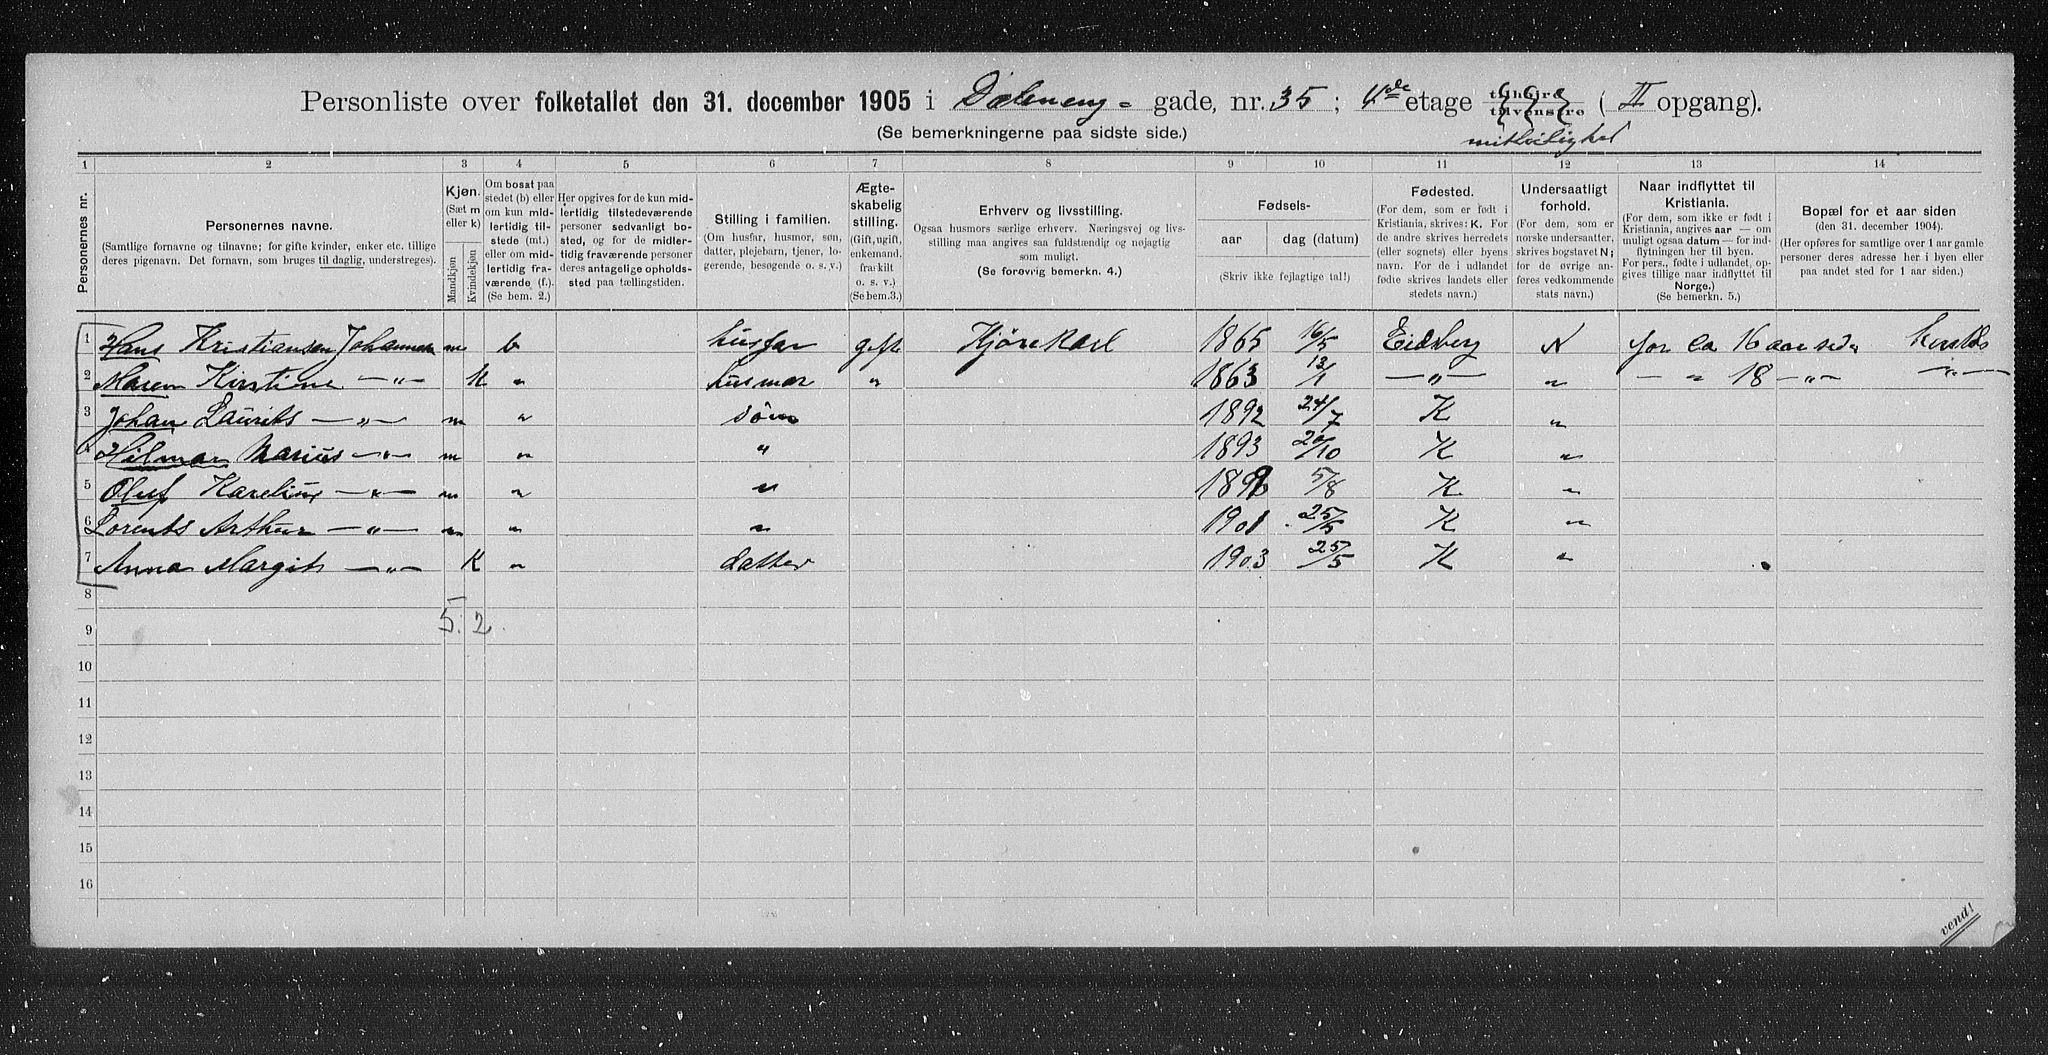 Personliste over folketallet den 31. december 1905 i Dæleneng- gade, nr. 35 ; 4de etage tilhøire tilvenstre ( II opgang).
(Se bemerkningerne paa sidste side.)
1 2 3 4 5 6 7 8 9 10 11 12 13 14
Personernes nr.
Personernes navne.
(Samtlige fornavne og tilnavne; for gifte kvinder, enker etc. tillige
deres pigenavn. Det fornavn, som bruges til daglig, understreges).
Kjøn.
(Sæt m
eller k)
Mandkjøn
Kvindekjøn
Om bosat paa
stedet (b) eller
om kun mid-
lertidig til-
stede (mt.)
eller om mid-
lertidig fra-
værende (f.).
(Se bem. 2.)
Her opgives for de kun mid-
lertidig tilstedeværende
personer sedvanligt bo-
sted, og for de midler-
tidig fraværende personer
deres antagelige opholds-
sted paa tællingstiden.
Stilling i familien.
(Om husfar, husmor, søn,
datter, plejebarn, tjener, lo-
gerende, besøgende o. s. v.)
Ægte-
skabelig
stilling.
(Gift, ugift,
enkemand,
fraskilt
o. s. v.)
(Se bem.3.)
Erhverv og livsstilling.
Ogsaa husmors særlige erhverv. Næringsvej og livs-
stilling maa angives saa fuldstændig og nøjagtig
som muligt.
(Se forøvrig bemerkn. 4.)
Fødsels-
aar dag (datum)
(Skriv ikke fejlagtige tal!)
Fødested.
(For dem, som er født i
Kristiania, skrives: K. For
de andre skrives herredets
(eller sognets) eller byens
navn. For de i udlandet
fødte skrives landets eller
stedets navn.)
Undersaatligt
forhold.
(For dem, som er
norske undersaatter,
skrives bogstavet N;
for de øvrige an-
føres vedkommende
stats navn.)
Naar indflyttet til
Kristiania.
(For dem, som ikke er født i
Kristiania, angives aar — om
muligt ogsaa datum — for ind-
flytningen her til byen.
For pers., fødte i udlandet, op-
gives tillige naar indflyttet til
Norge.)
(Se bemerkn. 5.)
Bopæl for et aar siden
(den 31. december 1904).
(Her opføres for samtlige over 1 aar gamle
personer deres adresse her i byen eller
paa andet sted for 1 aar siden.)
1 Hans Kristiansen Johannesen m b husfar gift Kjørekarl 1865 16/5 Eidberg N for ca 16 aar siden
2 Maren Kirstine —„— K „ husmor „ 1863 13/1 —„— „ — „ 18 —„— —„—
3 Johan Laurits —„— m „ søn 1892 24/7 K „
4 Hilmar Marius —„— m „ „ 1893 20/10 K „
5 Oluf Karelius —„— m „ „ 5/8 K „
6 Lorents Arthur —„— m „ „ 1901 25/5 K „
7 Anna Margit —„— K „ datter 1903 25/5 K „
8
5. 2.
9
10
11
12
13
14
15
16
vend!